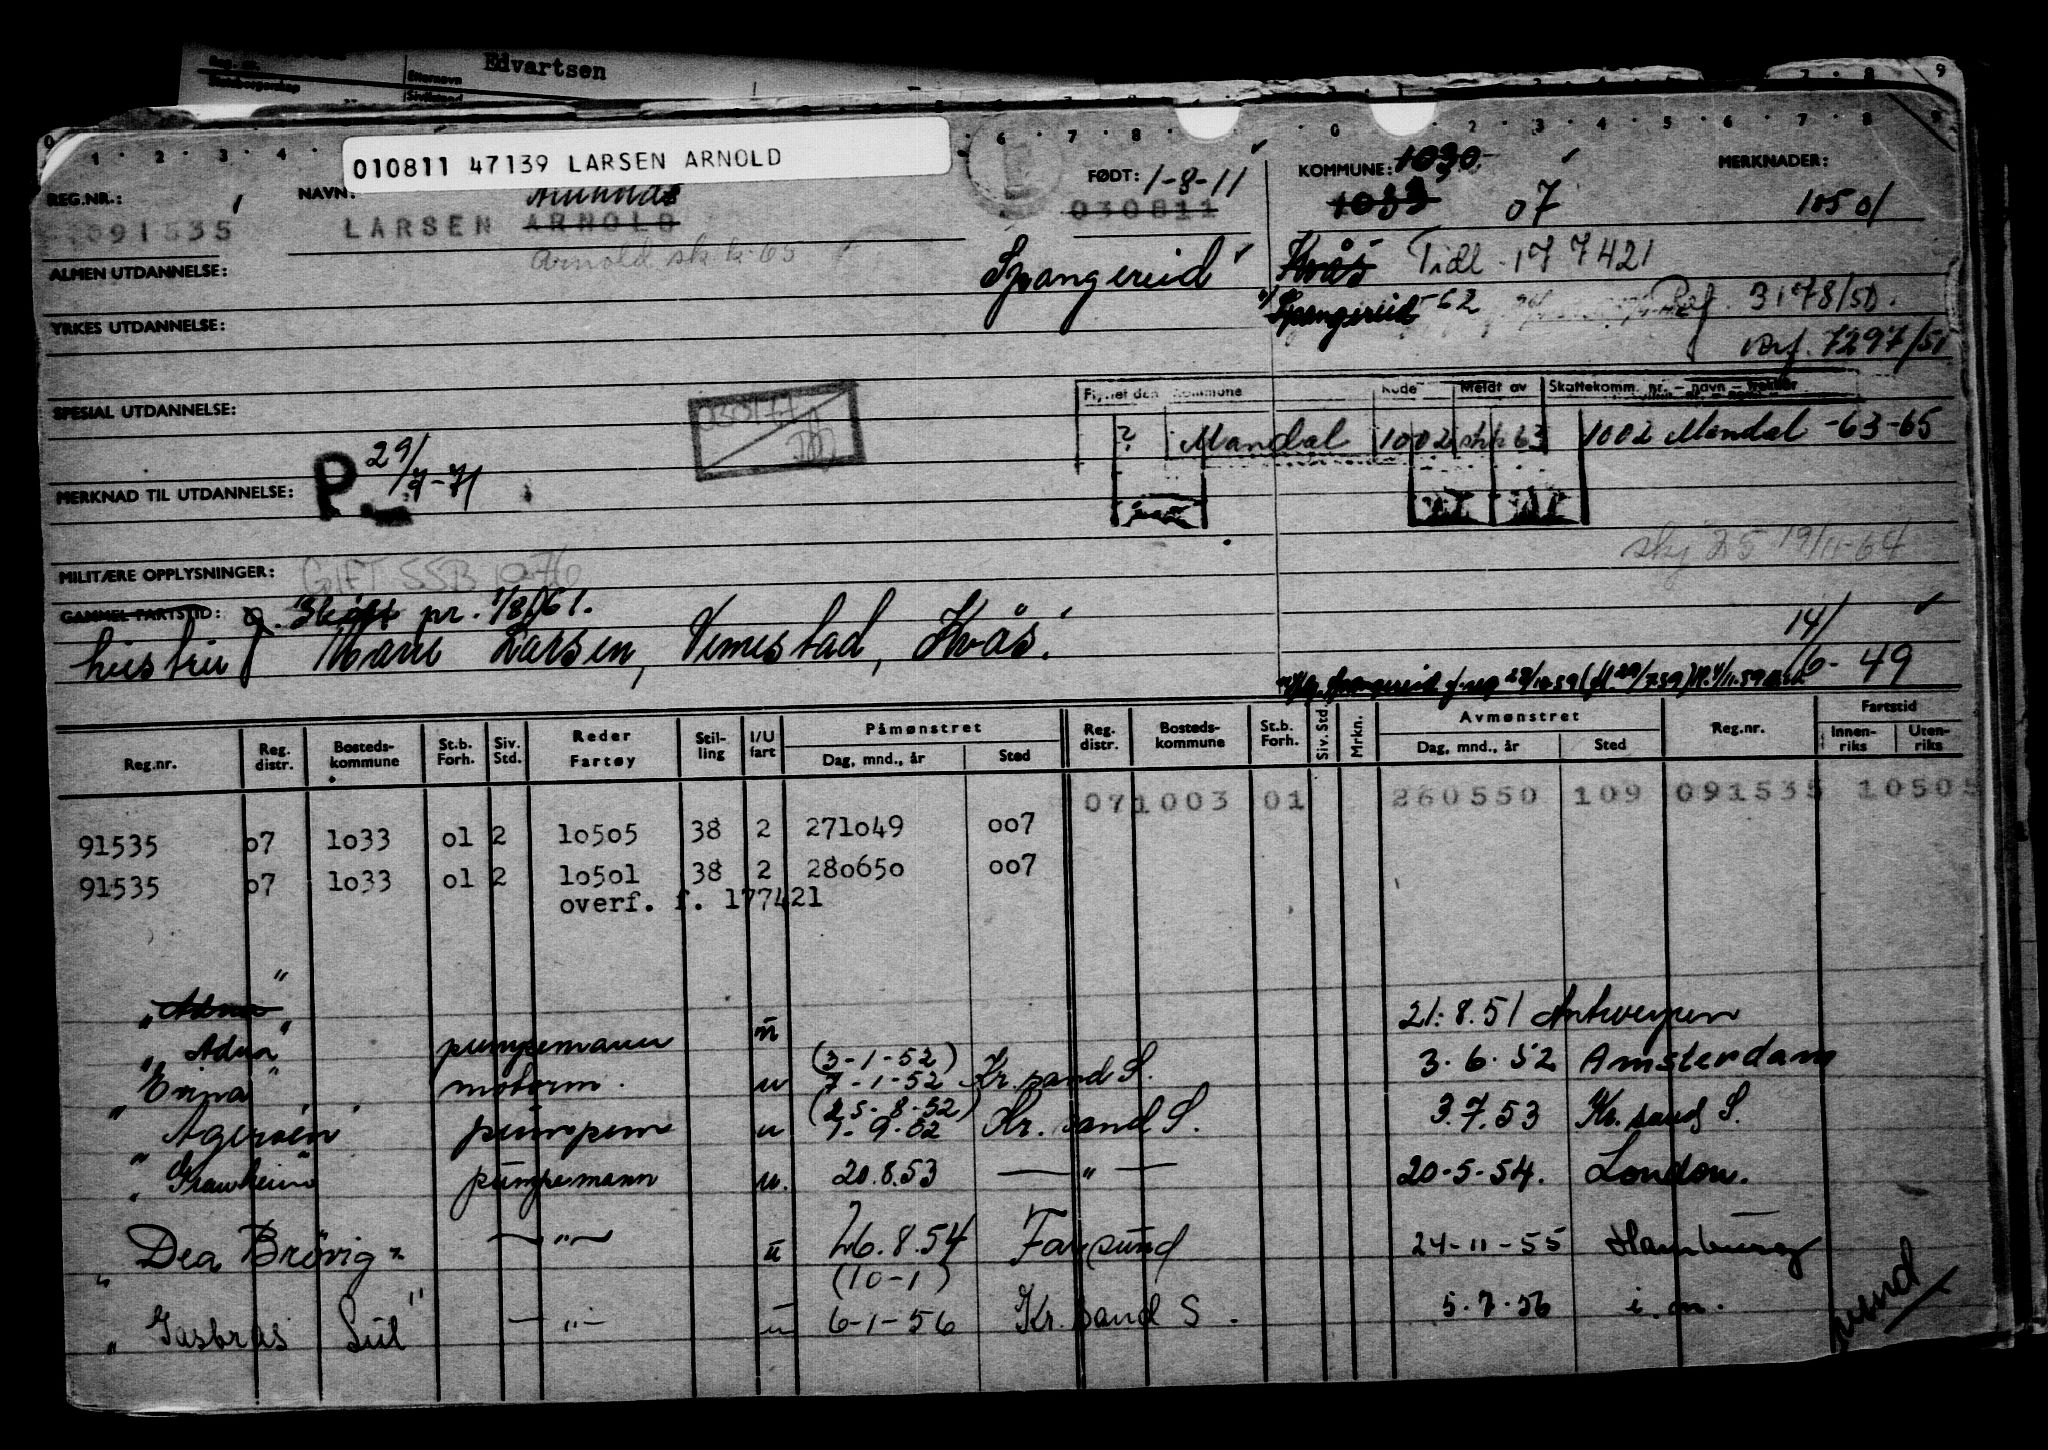 Edvartsen
Etternavn
010811 47139 LARSEN ARNOLD
REG.NR.:
NAVN:
FØDT: 1-8-11
KOMMUNE: 1030
MERKNADER:
091535
LARSEN ARNOLD
030811
1033 07
10501
Arnold skk 65
ALMEN UTDANNELSE:
Spangereid
Kvås Tidl. 177421
YRKES UTDANNELSE:
Spangereid -62
Ref. 3178/50.
Ref. 7297/51
SPESIAL UTDANNELSE:
Flyttet den Kommune Kode Meldt av Skattekomm. nr. - navn - trekkår
? Mandal 1002 skk 63 1002 Mandal -63-65
MERKNAD TIL UTDANNELSE: P 29/9-71
skj 25 19/11-64
MILITÆRE OPPLYSNINGER: GIFT SSB
GAMMEL FARTSTID: pr. 1/8 61.
hustru Marie Larsen, Vemestad, Kvås.
14/6-49
Reg.nr.
Reg. distr.
Bosteds-kommune
St.b. Forh.
Siv. Std.
Reder Fartøy
Stil-ling
I/U fart
Påmønstret
Dag, mnd., år
Sted
Reg. distr.
Bosteds-kommune
St.b. Forh.
Siv. Std.
Mrkn.
Avmønstret
Dag, mnd., år
Sted
Reg.nr.
Fartstid
Innen-riks
Uten-riks
071003 01 260550 109 091535 10505
91535 07 1033 01 2 10505 38 2 271049 007
91535 07 1033 01 2 10501 38 2 280650 007
overf. f. 177421
" Adna " 21.8.51 Antwerpen
" Adna " pumpemann u (3-1-52) 3.6.52 Amsterdam
" Erina " motorm. u 7-1-52 Kr.sand S.
(25-8-52)
" Agerøen pumpem u 1-9-52 Kr.sand S. 3.7.53 Kr.sand S.
" Granheim pumpemann u. 20.8.53 — " — 20-5-54. London.
" Dea Brøvig " — " — u 26.8.54 Farsund 24-11-55 Hamburg
(10-1)
" Gasbras Sul " — " — u 6-1-56 Kr.sand S. 5.7.56 i.m.